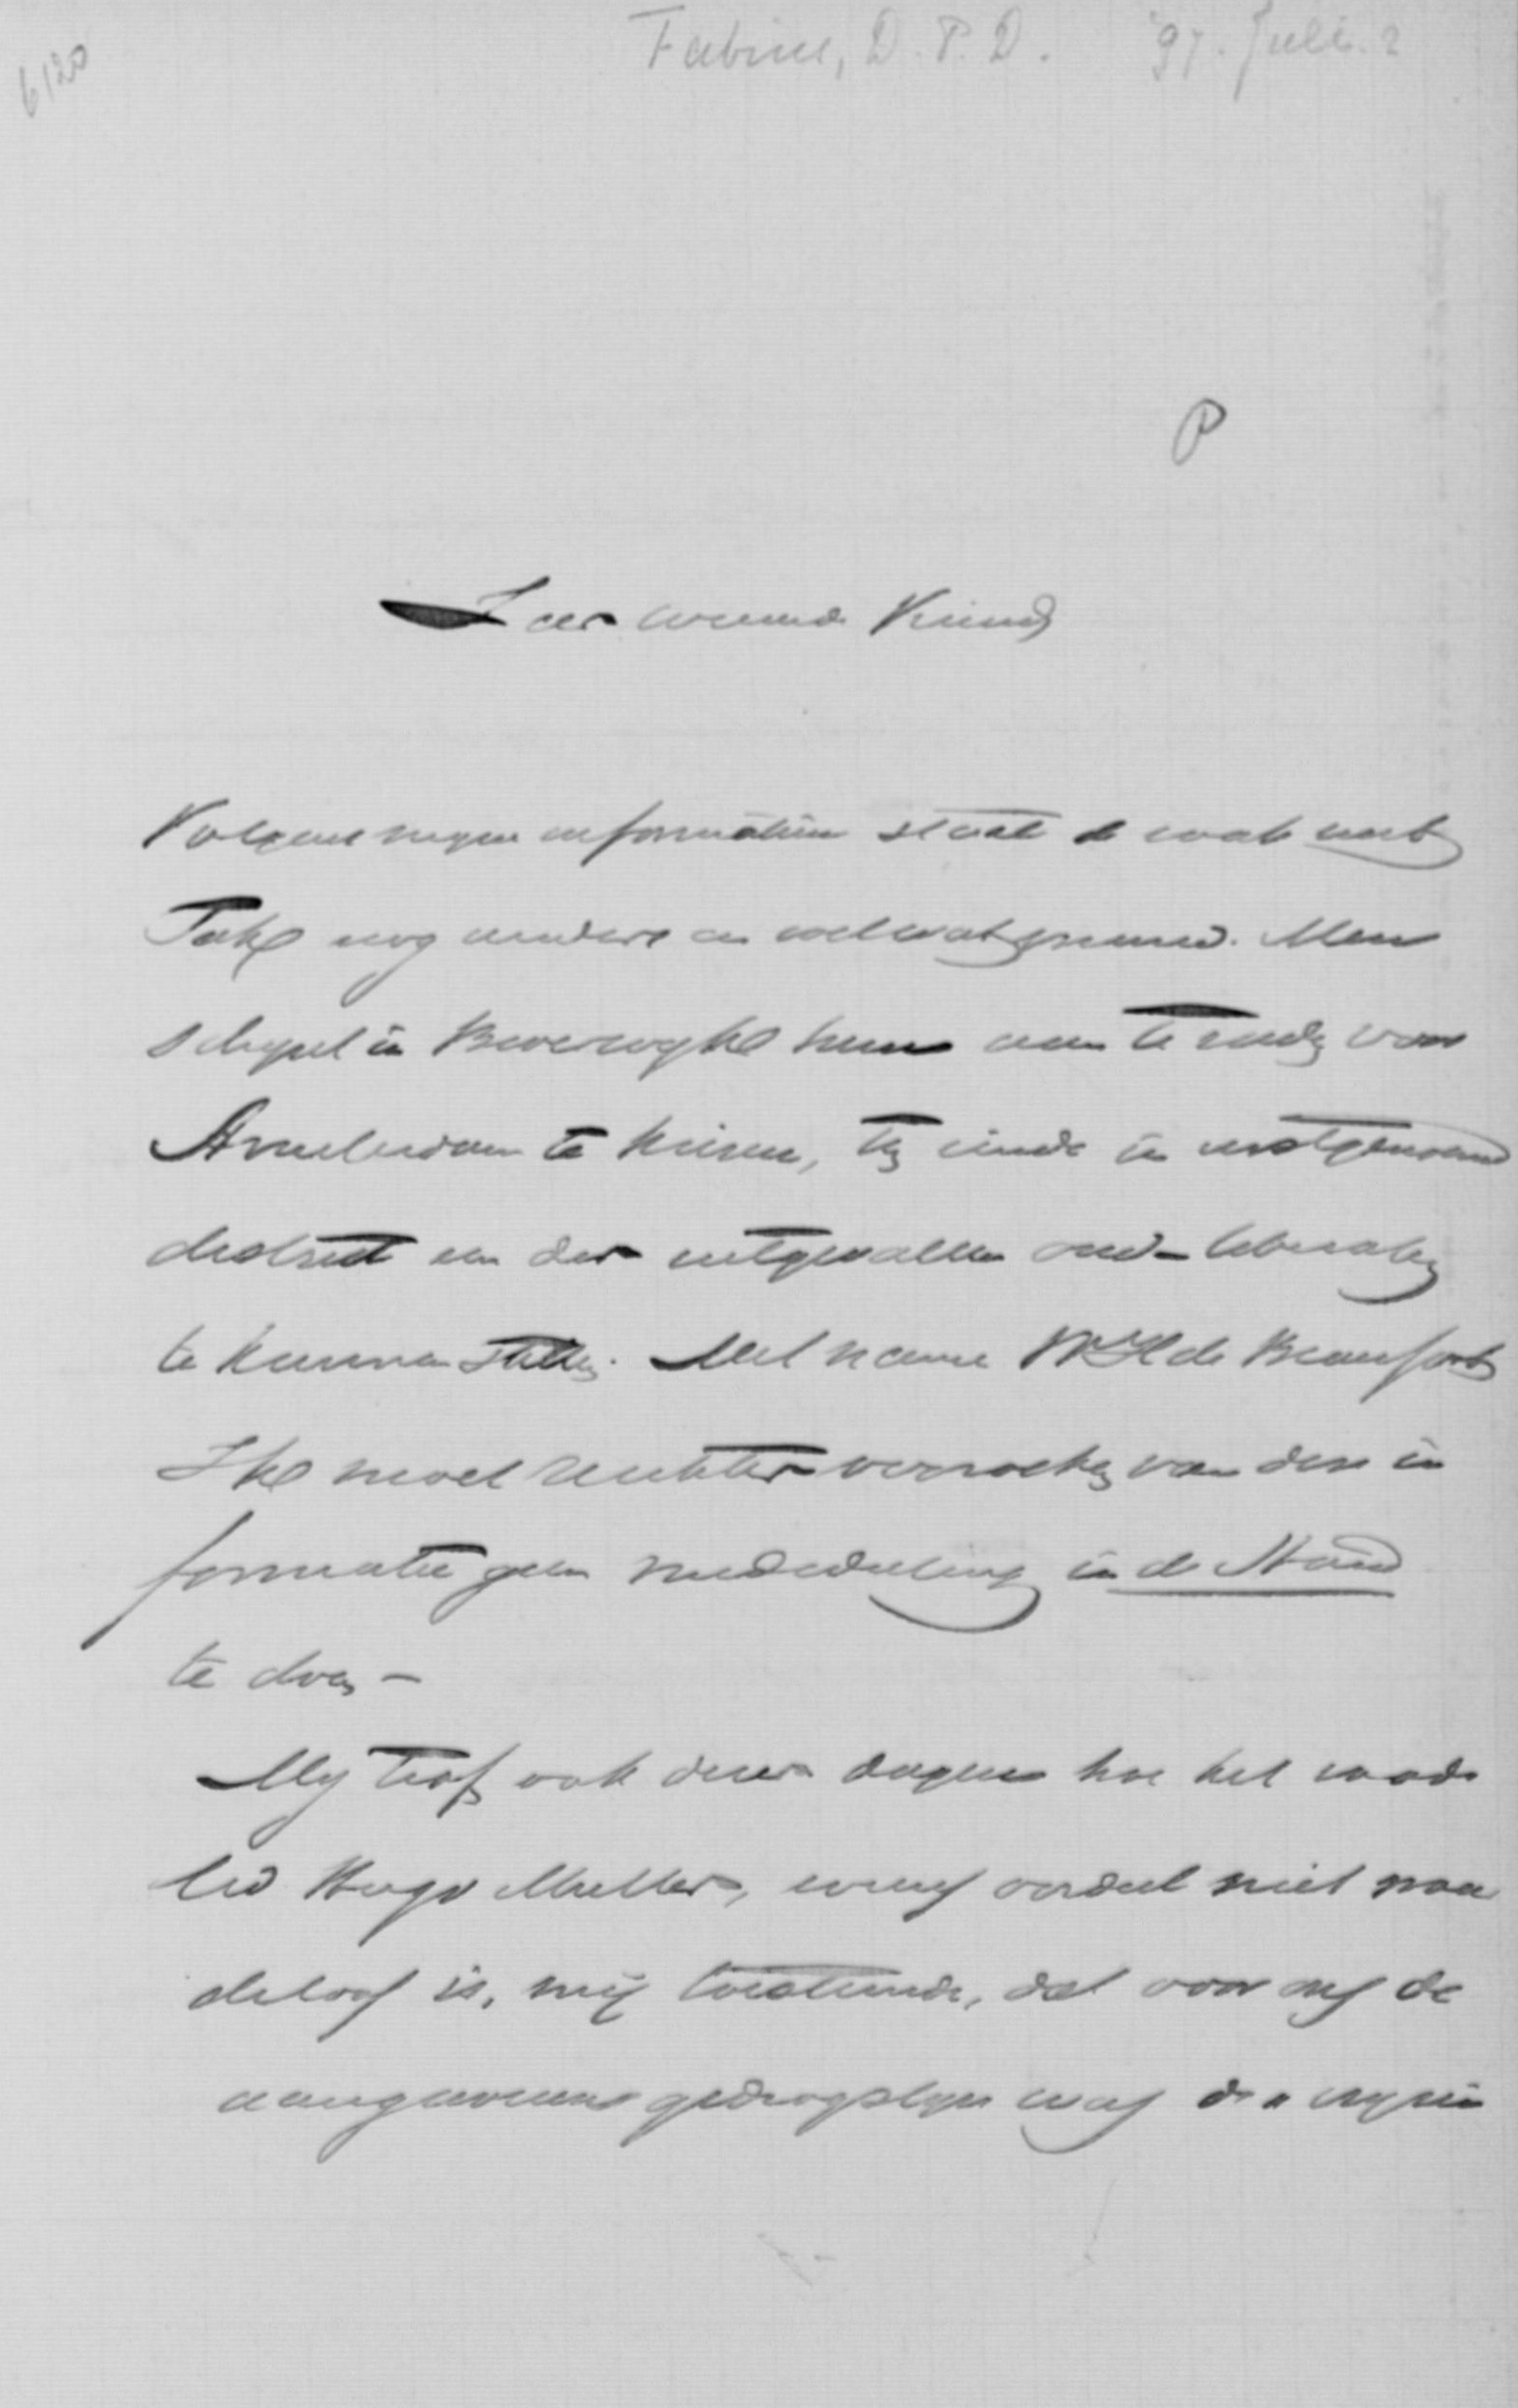 6120
Fabius, D. P. D. '97. Juli. 2
P
Zeer waarde Vriend
Volgens mijne informatiën staat de zaak met
Tak nog anders en wel wat Men
schijnt in Beverwijk hem aan te raden voor
Amsterdam te kiezen, ten einde in eerstgenoemd
district een der uitgevallen oud-liberalen
te kunnen stellen. Met name WH de Beaufort
Ik moet echter verzoeken van deze in
formatie geen mededeeling in de Stand
te doen —
Mij trof ook dezer dagen hoe het raads
lid Hugo Muller, wiens oordeel niet waar
deloos is, mij toestemde, dat voor ons de
aangewezen gedragslijn was